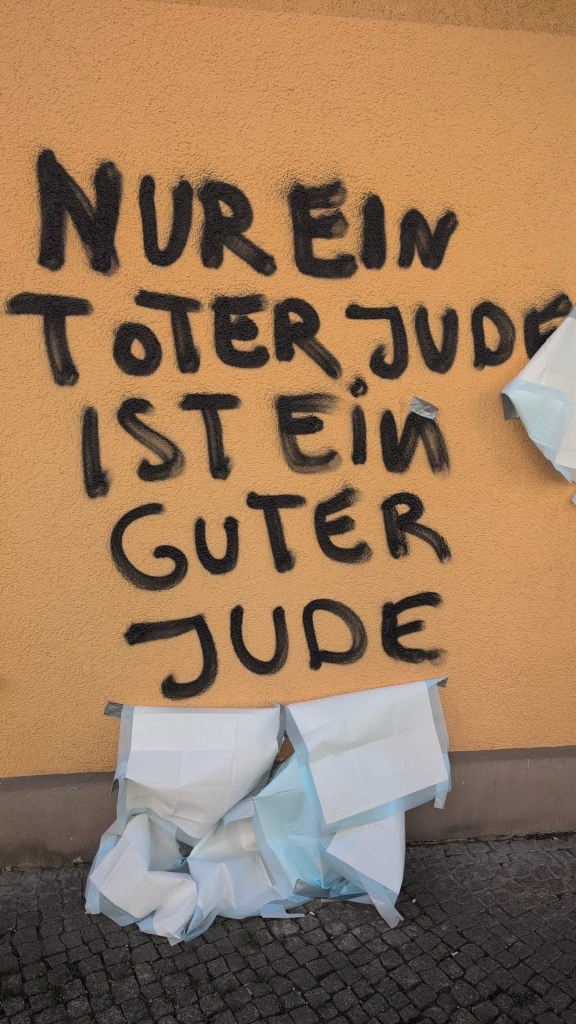 NUR EIN
TOTER JUDE
IST EiN
GUTER
JUDE